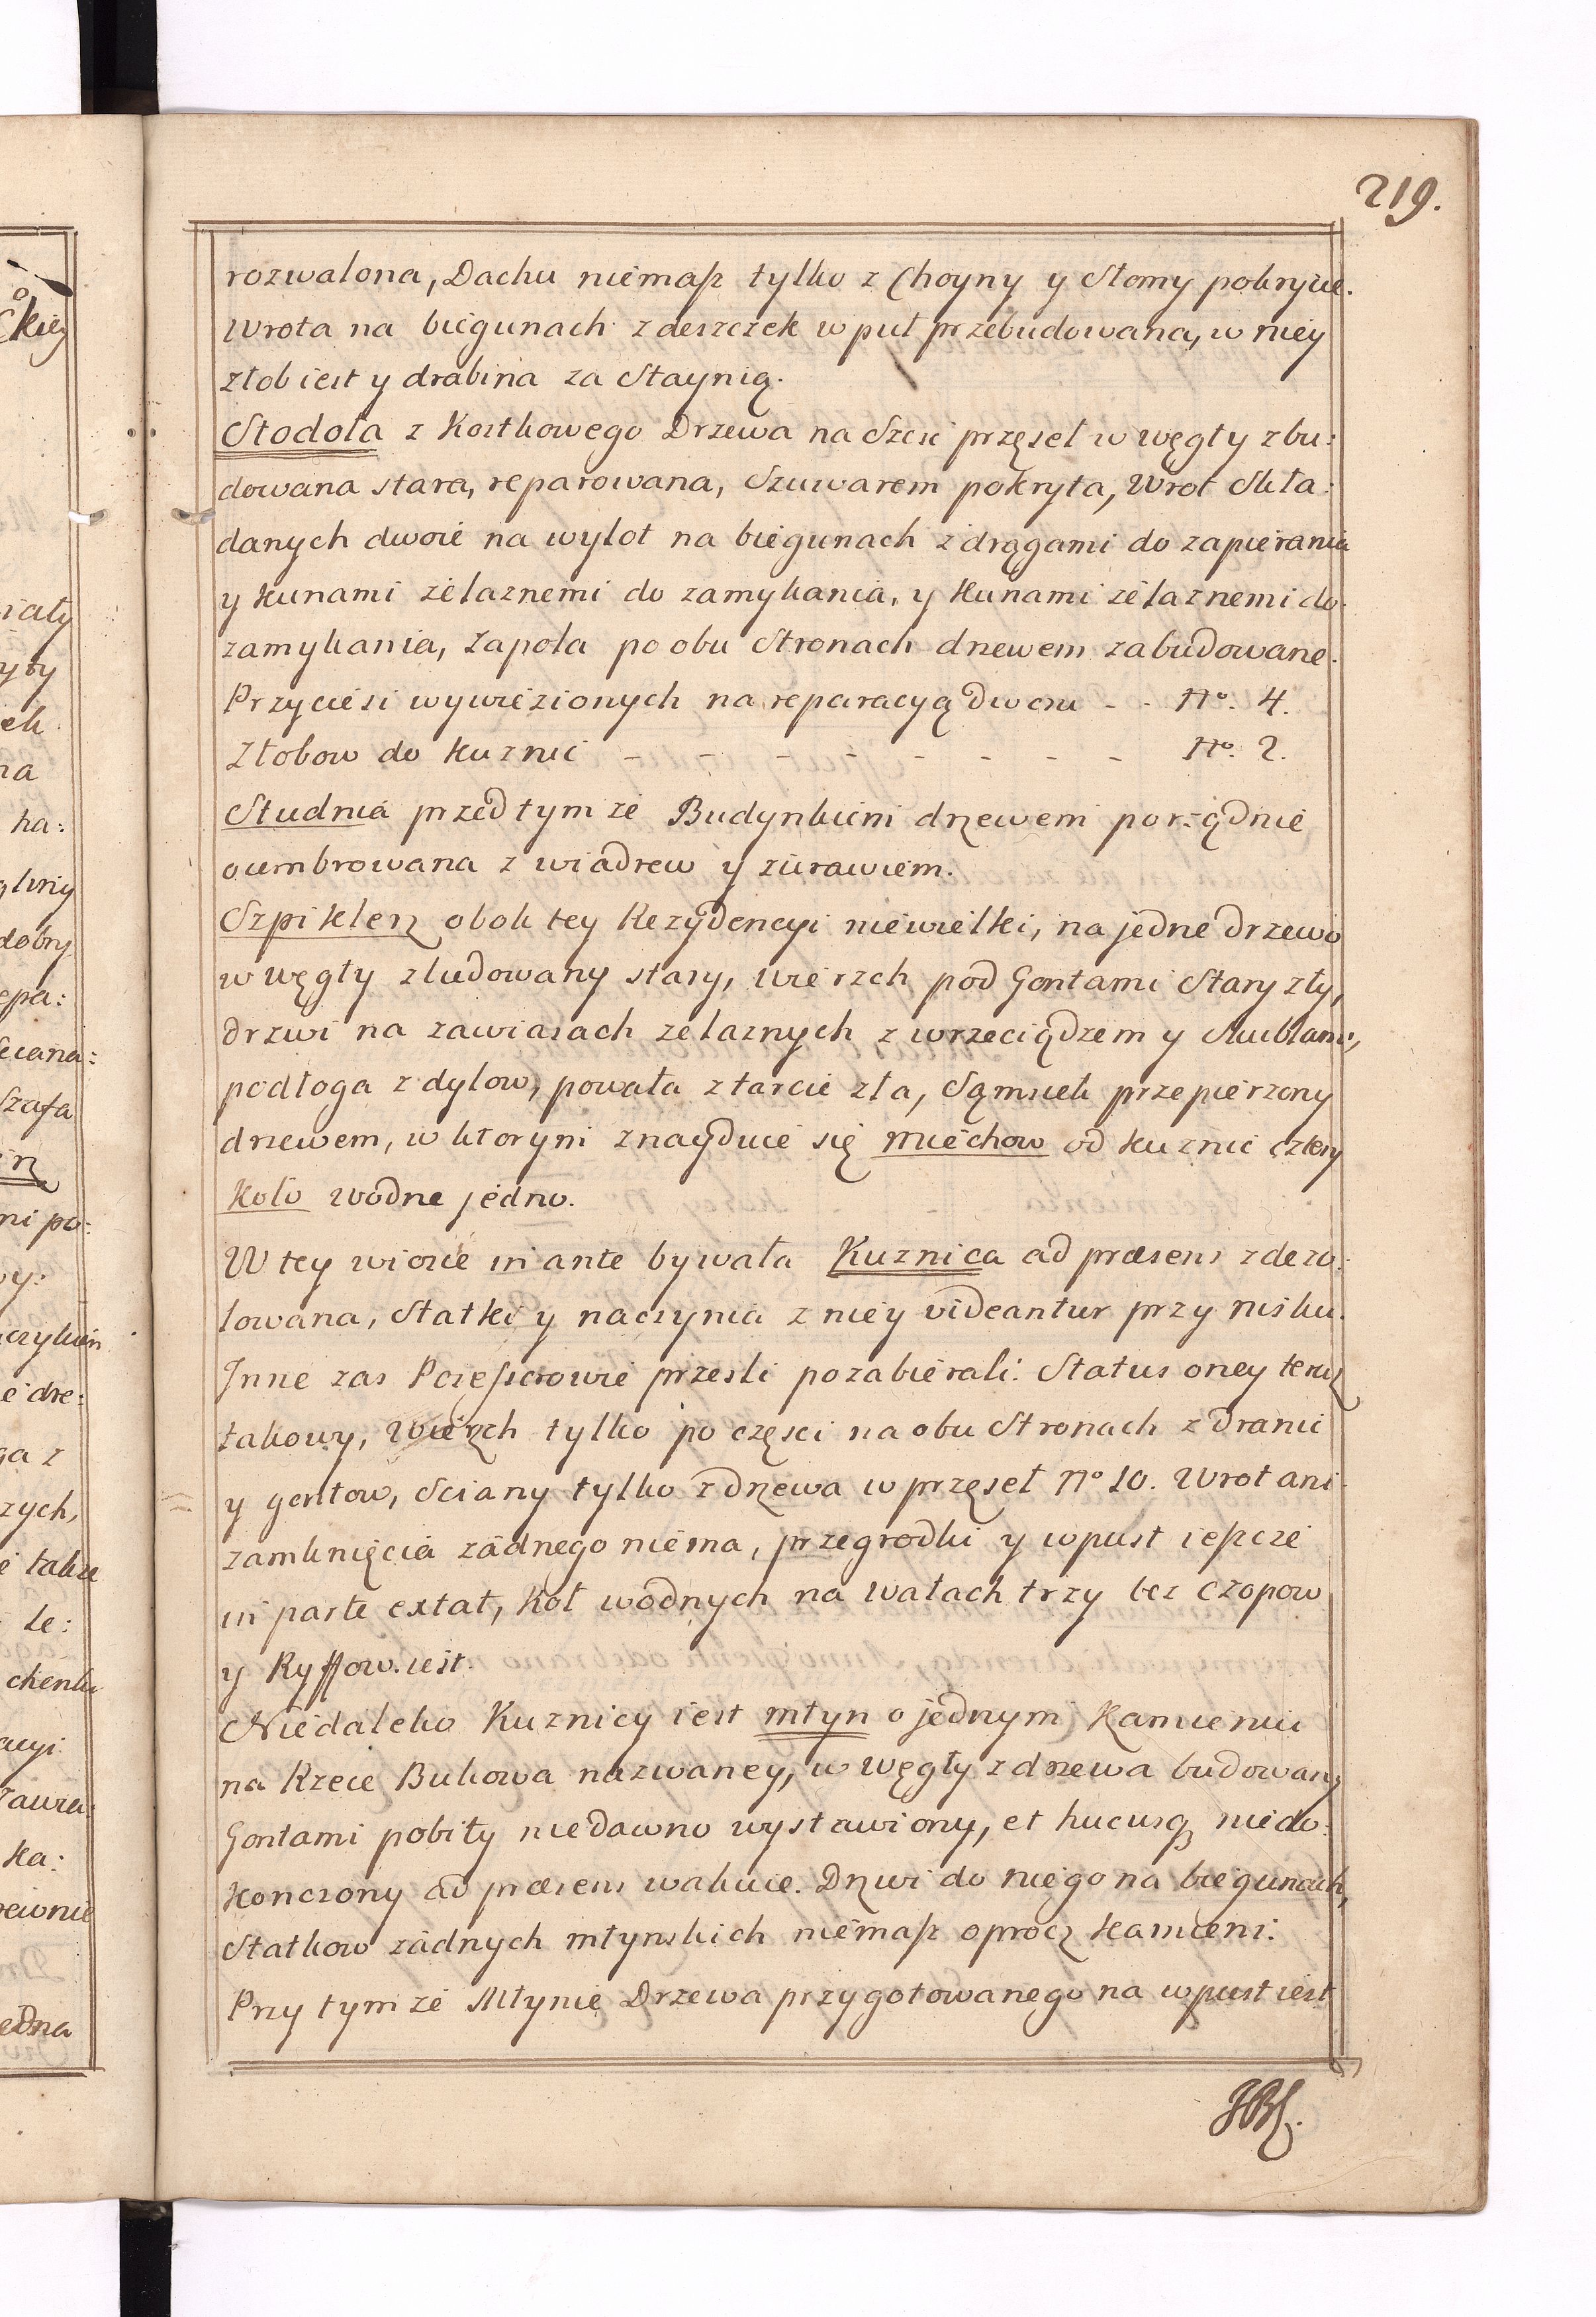 219.
rozwalona, Dachu niemasz tylko z Choyny y Słomy pokrycie.
Wrota na biegunach z deszczek w puł przebudowana, w niey
złob iest y drabina za Staynią.
Stodoła z Kostkowego Drzewa na Szesc przęseł w węgły zbu:
dowana stara, reparowana, Szuwarem pokryta, Wrot Skła:
danych dwoie na wylot na biegunach z drągami do zapierania
y kunami żelaznemi do zamykania, y kunami żelaznemi do
zamykania, zapola po obu Stronach drzewem zabudowane.
Przyciesi wywiezionych na reparacyą dworu - - No. 4.
Złobow do kuznic - - - - - - - - No. 2.
Studnia przed tymże Budynkiem drzewem porządnie
ocembrowana z wiadrew y żurawiem.
Szpiklerz obok tey Rezydencyi niewielki, na jedne drzewo
w węgły zbudowany stary, wierzch pod Gontami Stary zły,
drzwi na zawiasach zelaznych z wrzeciądzem y Skublami,
podłoga z dylow, powała z tarcic zła, Sąmsiek przepierzony
drzewem, w ktorym znayduie się miechow od kuznic cztery
Koło wodne jedno.
W tey wiosce in ante bywała Kuznica ad præsens zdezo:
lowana, Statki y naczynia z niey videantur przy nisku.
Inne zas Possessorowie przeszli pozabierali. Status oney teraz
takowy, Wierzch tylko po części na obu Stronach z Dranic
y gontow, Sciany tylko z drzewa w przęseł No 10. Wrot ani
zamknięcia żadnego niema, przegrodki y wpust ieszcze
in parte extat, Koł wodnych na Wałach trzy bez Czopow
y Ryffow iest.
Niedaleko Kuznicy iest młyn o jednym Kamieniu
na Rzece Bukowa nazwaney, w węgły z drzewa budowany
Gontami pobity niedawno wystawiony, et hucusq niedo:
konczony ad præsens wakuie. Drzwi do niego na biegunach,
Statkow żadnych młynskich niemasz oprocz kamieni.
Przy tymże Młynie Drzewa przygotowanego na wpust iest